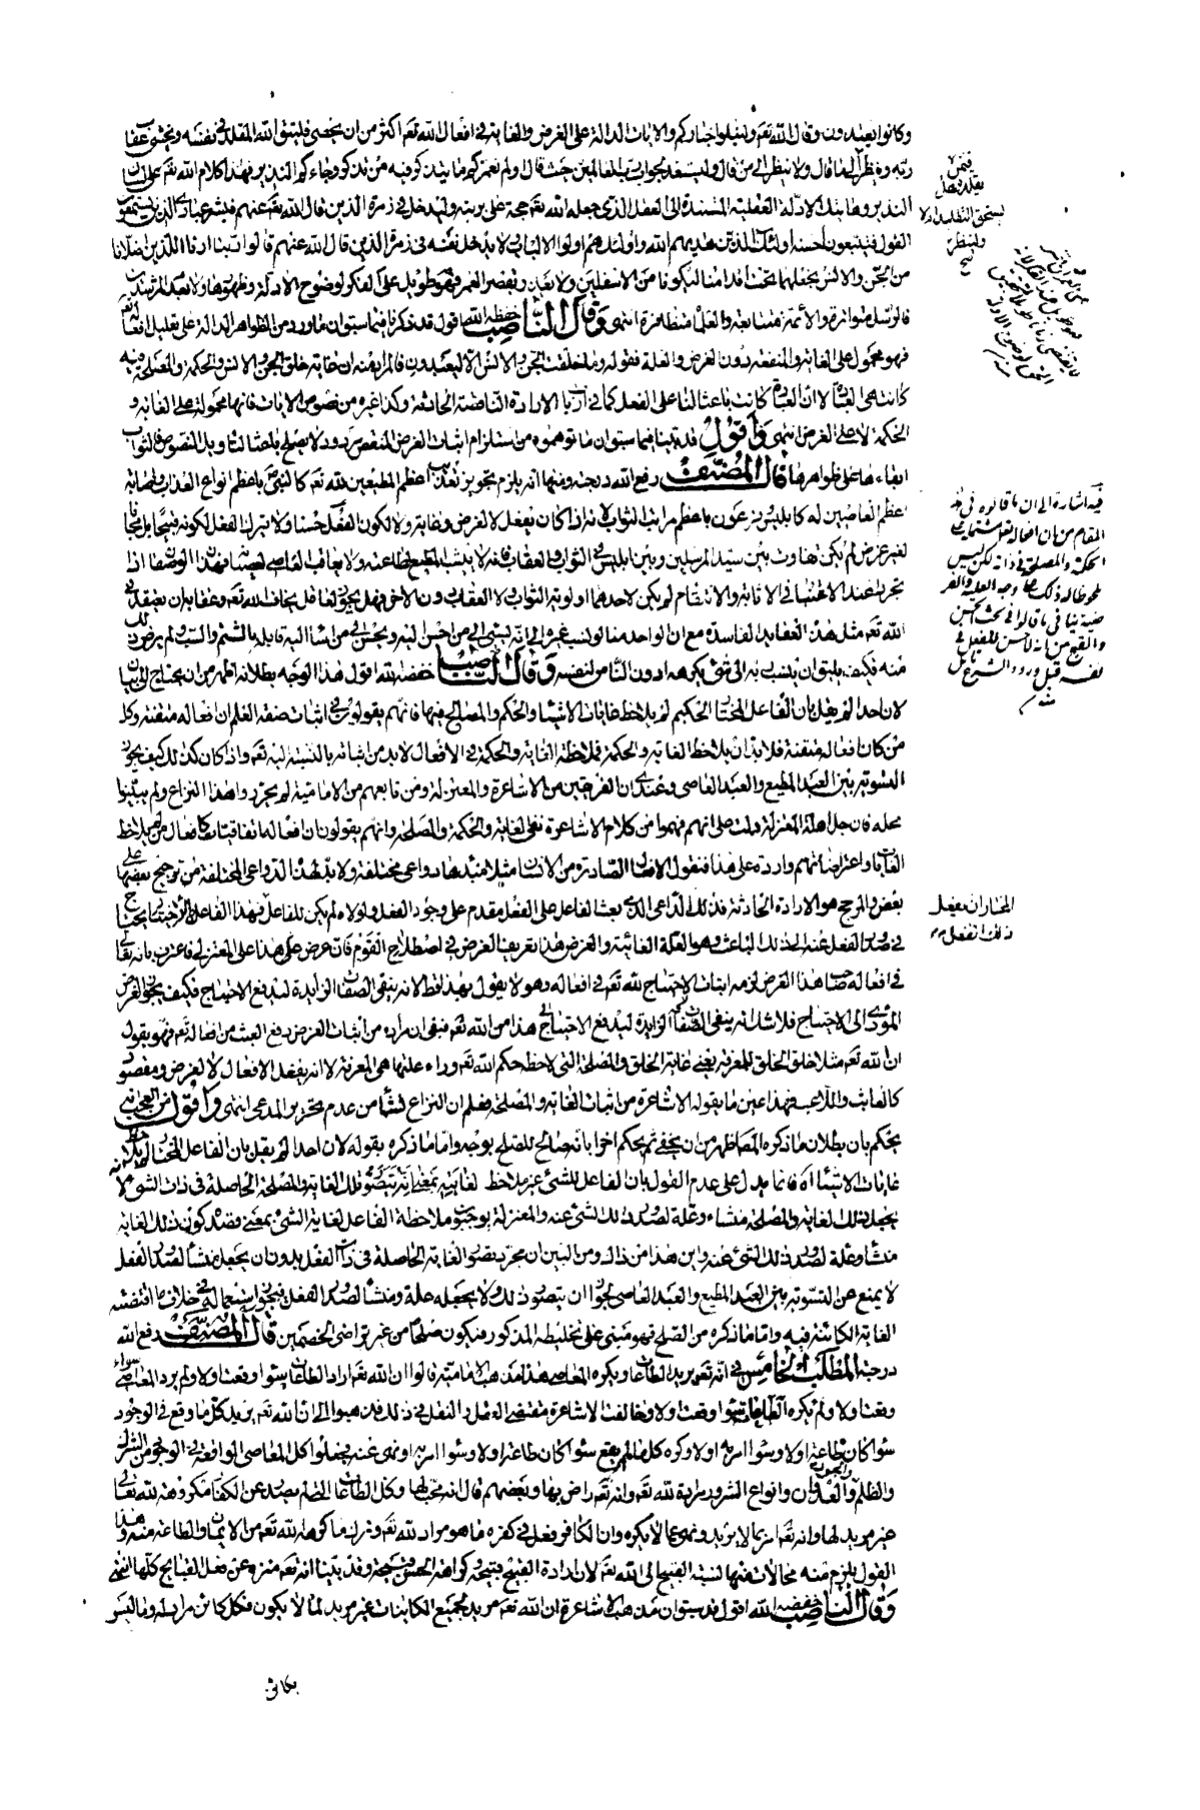 وكانوا يعتدون وقال الله تعم ولنبلو اخباركم والايات الدالة على الغرض والغاية في افعال الله تعم اكثر من ان يحصى فليتق الله المقلد في نفسه ويخشى عقاب
ربه وينظر الى ما قال ولا ينظر الى من قال وليستعد بجواب رب العالمين حيث قال ولم نعمركم ما يتذكر فيه من تذكر وجاءكم النذير فهذا كلام الله تعم على لسان
النذير وهاتيك الادلة العقلية المستندة الى العقل الذي جعله الله تعم حجة على بريته وليدخل في زمرة الذين قال الله تعم عنهم فبشر عبادي الذين يستمعون
القول فيتبعون احسنه اولئك الذين هديهم الله واولئك هم اولوا الالباب ولا يدخل نفسه في زمرة الذين قال الله عنهم قالوا ربنا ارنا اللذين اضلانا
من الجن والانس نجعلهما تحت اقدامنا ليكونا من الاسفلين ولا يعتذر بقصر العمر فهو طويل على الفكر لوضوح الادلة وظهورها ولا بعدم المرشدين
فالرسل متواترة والائمة متتابعة والعلماء متظافرة انتهى وقال الناصب خفضه الله اقول قد ذكرنا فيما سبق ان ما ورد من الظواهر الدالة على تعليل افعاله تعم
فهو محمول على الغاية والمنفعة دون الغرض والعلة فقوله وما خلقت الجن والانس الا ليعبدون فالمراد منه ان غاية خلق الجن والانس والحكمة والمصلحة فيه
كانت هي العبادة لا ان العبادة كانت باعثا لنا على الفعل كما في ارباب الارادة الناقصة الحادثة وكذا غيره من نصوص الايات فانها محمولة على الغاية و
الحكمة لا على الغرض انتهى واقول قد بينا فيما سبق ان ما توهموه من استلزام اثبات الغرض للنقص مردود لا يصلح باعثا لتاويل النصوص فالثواب
ابقاءها على ظواهرها قال المصنف رفع الله درجته ومنها انه يلزم تجويز تعذيب اعظم المطيعين لله تعم كالنبي ص باعظم انواع العذاب واثابة
اعظم العاصين له كابليس وفرعون باعظم مراتب الثواب لانه اذا كان يفعل لا لغرض وغاية ولا لكون الفعل حسنا ولا يترك الفعل لكونه قبيحا بل مجانا
لغير غرض لم يكن تفاوت بين سيد المرسلين وبين ابليس في الثواب والعقاب فانه لا يثيب المطيع لطاعته ولا يعاقب العاصي لعصيانه فهذان الوصفان اذا
تجردا عند الاعتبار في الاثابة والانتقام لم يكن لاحدهما اولوية الثواب ولا العقاب دون الاخر فهل يجوز لعاقل يخاف الله تعم وعقابه ان يعتقد في
الله تعم مثل هذه العقايد الفاسدة مع ان الواحد منا لو نسب غيره الى انه يسيء الى من احسن اليه ويحسن الى من اساء اليه قابله بالشتم والسب ولم يرض ذلك
منه فكيف يليق ان ينسب ربه الى شيء يكرهه ادون الناس لنفسه وقال الناصب خفضه الله اقول هذا الوجه بطلانه اظهر من ان يحتاج الى بيان
لان احدا لم يقل بان الفاعل المختار الحكيم لم يلاحظ غايات الاشياء والحكم والمصالح فيها فانهم يقولون في اثبات صفة العلم ان افعاله متقنة وكل
من كان افعاله متقنة فلا بد ان يلاحظ الغاية والحكمة فملاحظة الغاية والحكمة في الافعال لا بد من اثباته بالنسبة اليه تعم واذا كان كذلك كيف يجوز
التسوية بين العبد المطيع والعبد العاصي وعندي ان الفريقين من الاشاعرة والمعتزلة ومن تابعهم من الامامية لم يحرروا هذا النزاع ولم يبينوا
محله فان جل ادلة المعتزلة دلت على انهم فهموا من كلام الاشاعرة نفي الغاية والحكمة والمصلحة وانهم يقولون ان افعاله اتفاقيات كافعال من لم يلاحظ
الغايات واعتراضاتهم واردة على هذا فنقول الافعال الصادرة من الانسان مثلا مبدؤها دواعي مختلفة ولا بد لهذه الدواعي المختلفة من ترجيح بعضها على
بعض والمرجح هو الارادة الحادثة فذلك الداعي الذي بعث الفاعل على الفعل مقدم على وجود الفعل ولولاه لم يكن للفاعل فهذا الفاعل بالاختيار يحتاج
في صدور الفعل عنه الى ذلك الباعث وهو العلة الغائية والغرض هذا تعريف الغرض في اصطلاح القوم فان عرض على هذا على المعتزلي فاعترف بانه تعالى
في افعاله صاحب هذا الغرض لزمه اثبات الاحتياج لله تعم في افعاله وهو لا يقول بهذا قط لانه ينفي الصفات الزايدة ليدفع الاحتياج فكيف يجوز الغرض
المؤدي الى الاحتياج فلا شك انه ينفي الصفات الزايدة ليدفع الاحتياج هذا من الله تعم فبقي ان مراده من اثبات الغرض دفع العبث من افعاله تعم فهو يقول
ان الله تعم مثلا خلق الخلق للمعرفة يعني غاية الخلق والمصلحة التي لاحظ حكم الله تعم وراء عليها هي المعرفة لا انه يفعل الافعال لا لغرض ومقصود
كالعابث واللاعب فهذا عين ما يقوله الاشاعرة من اثبات الغاية والمصلحة فعلم ان النزاع نشأ من عدم تحرير المدعى انتهى واقول من العجايب ان
يحكم بان بطلان ما ذكره المص اظهر من ان يخفى ثم يحكم اخرا بانه صالح للصلح بوجه واما ما ذكره بقوله لان احدا لم يقل بان الفاعل المختار لم يلاحظ
غايات الاشياء اه فانما يدل على عدم القول بان الفاعل للشيء غير ملاحظ لغايته بمعنى انه يتصور تلك الغاية والمصلحة الحاصلة في ذات الشيء لا انه
يجعل تلك الغاية والمصلحة منشاء وعلة لصدور ذلك الشيء عنه والمعتزلة يوجبون ملاحظة الفاعل لغاية الشيء بمعنى قصد كون تلك الغاية
منشأ وعلة لصدور ذلك الشيء عنه واين هذا من ذاك ومن البين ان مجرد تصور الغاية الحاصلة في ذات الفعل بدون ان يجعل منشأ لصدور الفعل
لا يمنع عن التسوية بين العبد المطيع والعبد العاصي لجواز ان يتصور ذلك ولا يجعله علة ومنشأ لصدور الفعل فيجوز استعماله في خلاف ما اقتضته
الغاية الكائنة فيه واما ما ذكره من الصلح فهو مبني على تخليطه المذكور فيكون صلحا من غير تراضي الخصمين قال المصنف رفع الله
درجته المطلب الخامس في انه تعم يريد الطاعات ويكره المعاصي هذا مذهب الامامية قالوا ان الله تعم اراد الطاعات سواء وقعت اولا ولم يرد المعاصي سواء
وقعت اولا ولم يكره الطاعات سواء وقعت اولا وخالفت الاشاعرة مقتضى العقل والنقل في ذلك فذهبوا الى ان الله تعم يريد كل ما وقع في الوجود
سواء كان طاعة اولا وسواء امر به اولا وكره كل ما لم يقع سواء كان طاعة اولا وسواء امر به او نهى عنه فجعلوا كل المعاصي الواقعة في الوجود من الشرك
والظلم والجور والعدوان وانواع الشرور مرادة لله تعم وانه تعم راض بها وبعضهم قال انه محب لها وكل الطاعات التي لم تصدر عن الكفار مكروهة لله تعالى
غير مريد لها وانه تعم امر بما لا يريد ونهى عما لا يكره وان الكافر فعل في كفره ما هو مراد لله تعم وترك ما كره الله تعم من الايمان والطاعة منه وهذا
القول يلزم منه محالات منها نسبة القبيح الى الله تعم لان ارادة القبيح قبيحة وكراهة الحسن قبيحة وقد بينا انه تعم منزه عن فعل القبايح كلها انتهى
وقال الناصب خفضه الله اقول قد سبق ان مذهب الاشاعرة ان الله تعم مريد لجميع الكاينات غير مريد لما لا يكون فكل كائن مراد له وما ليس
بكائن
فيه اشارة الى ان ما قالوه في هذا
المقام من بان افعاله تعم يشتمل على
الحكمة والمصلحة في ذاته لكن ليس
والقبح من انه لا حسن للفعل في
نفسه قبل ورود الشرع تأمل
منه
المختار ان يفعل
ذلك الفعل